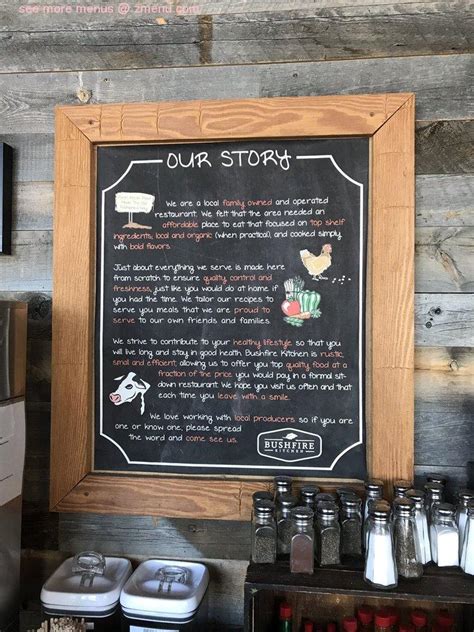 see more menus @ zmenu.com
OUR STORY
We are a local family owned and operated
restaurant. We felt that the area needed an
affordable place to eat that focused on top shelf
ingredients; local and organic (when practical), and cooked simply
with bold flavors.
Just about everything we serve is made here
from scratch to ensure quality control and
freshness, just like you would do at home if
you had the time. We tailor our recipes to
serve you meals that we are proud to
serve to our own friends and families.
We strive to contribute to your healthy lifestyle so that you
will live long and stay in good health. Bushfire Kitchen is rustic,
small and efficient allowing us to offer you top quality food at a
fraction of the price you would pay in a formal sit-
down restaurant. We hope you visit us often and that
each time you leave with a smile.
We love working with local producers so if you are
one or know one, please spread
the word and come see us.
BUSHFIRE
KITCHEN